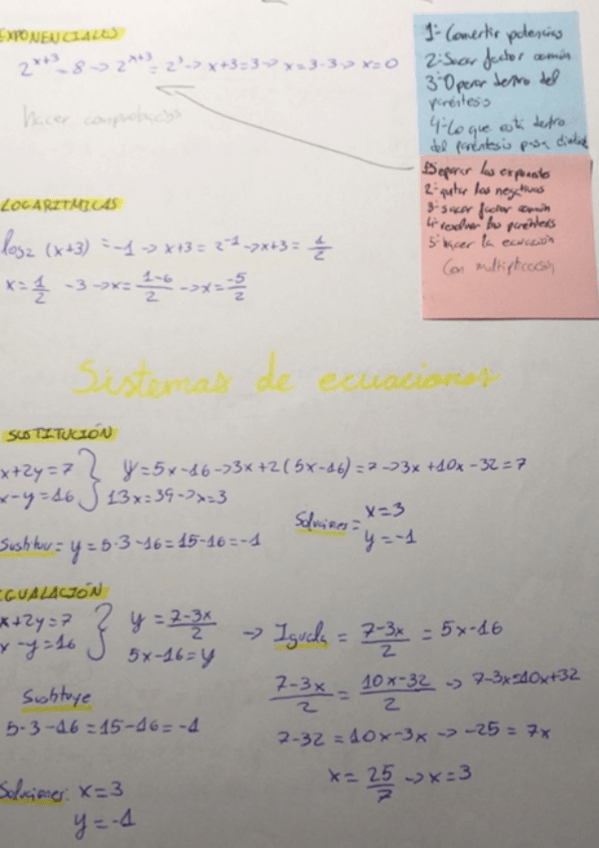 EXPONENCIALES
2^(x+3) = 8 -> 2^(x+3) = 2³ -> x+3=3 -> x=3-3 -> x=0
Hacer comprobación
1- Convertir potencias
2- Sacar factor común
3- Operar dentro del
paréntesis
4- Lo que está dentro
del paréntesis pasa
1- Separar los exponentes
2- quitar los negativos
3- sacar factor común
4- resolver los paréntesis
5- hacer la ecuación
Con multiplicación
LOGARITMICAS
log₂ (x+3) = -1 -> x+3 = 2^-1 -> x+3 = 1/2
x = 1/2 -3 -> x = 1-6/2 -> x = -5/2
Sistemas de ecuaciones
SUSTITUCIÓN
x+2y=7 } y=5x-16 -> 3x+2(5x-16)=7 -> 3x+10x-32=7
x-y=16 } 13x=39 -> x=3
Soluciones = x=3
y=-1
Sustituir = y=5·3-16=15-16=-1
IGUALACIÓN
x+2y=7 } y = 7-3x/2 -> Iguala = 7-3x/2 = 5x-16
x-y=16 } 5x-16=y
7-3x/2 = 10x-32/2 -> 7-3x=10x+32
Sustituye
5·3-16=15-16=-1
7-32=10x-3x -> -25=7x
x = 25/7 -> x=3
Soluciones: x=3
y=-1